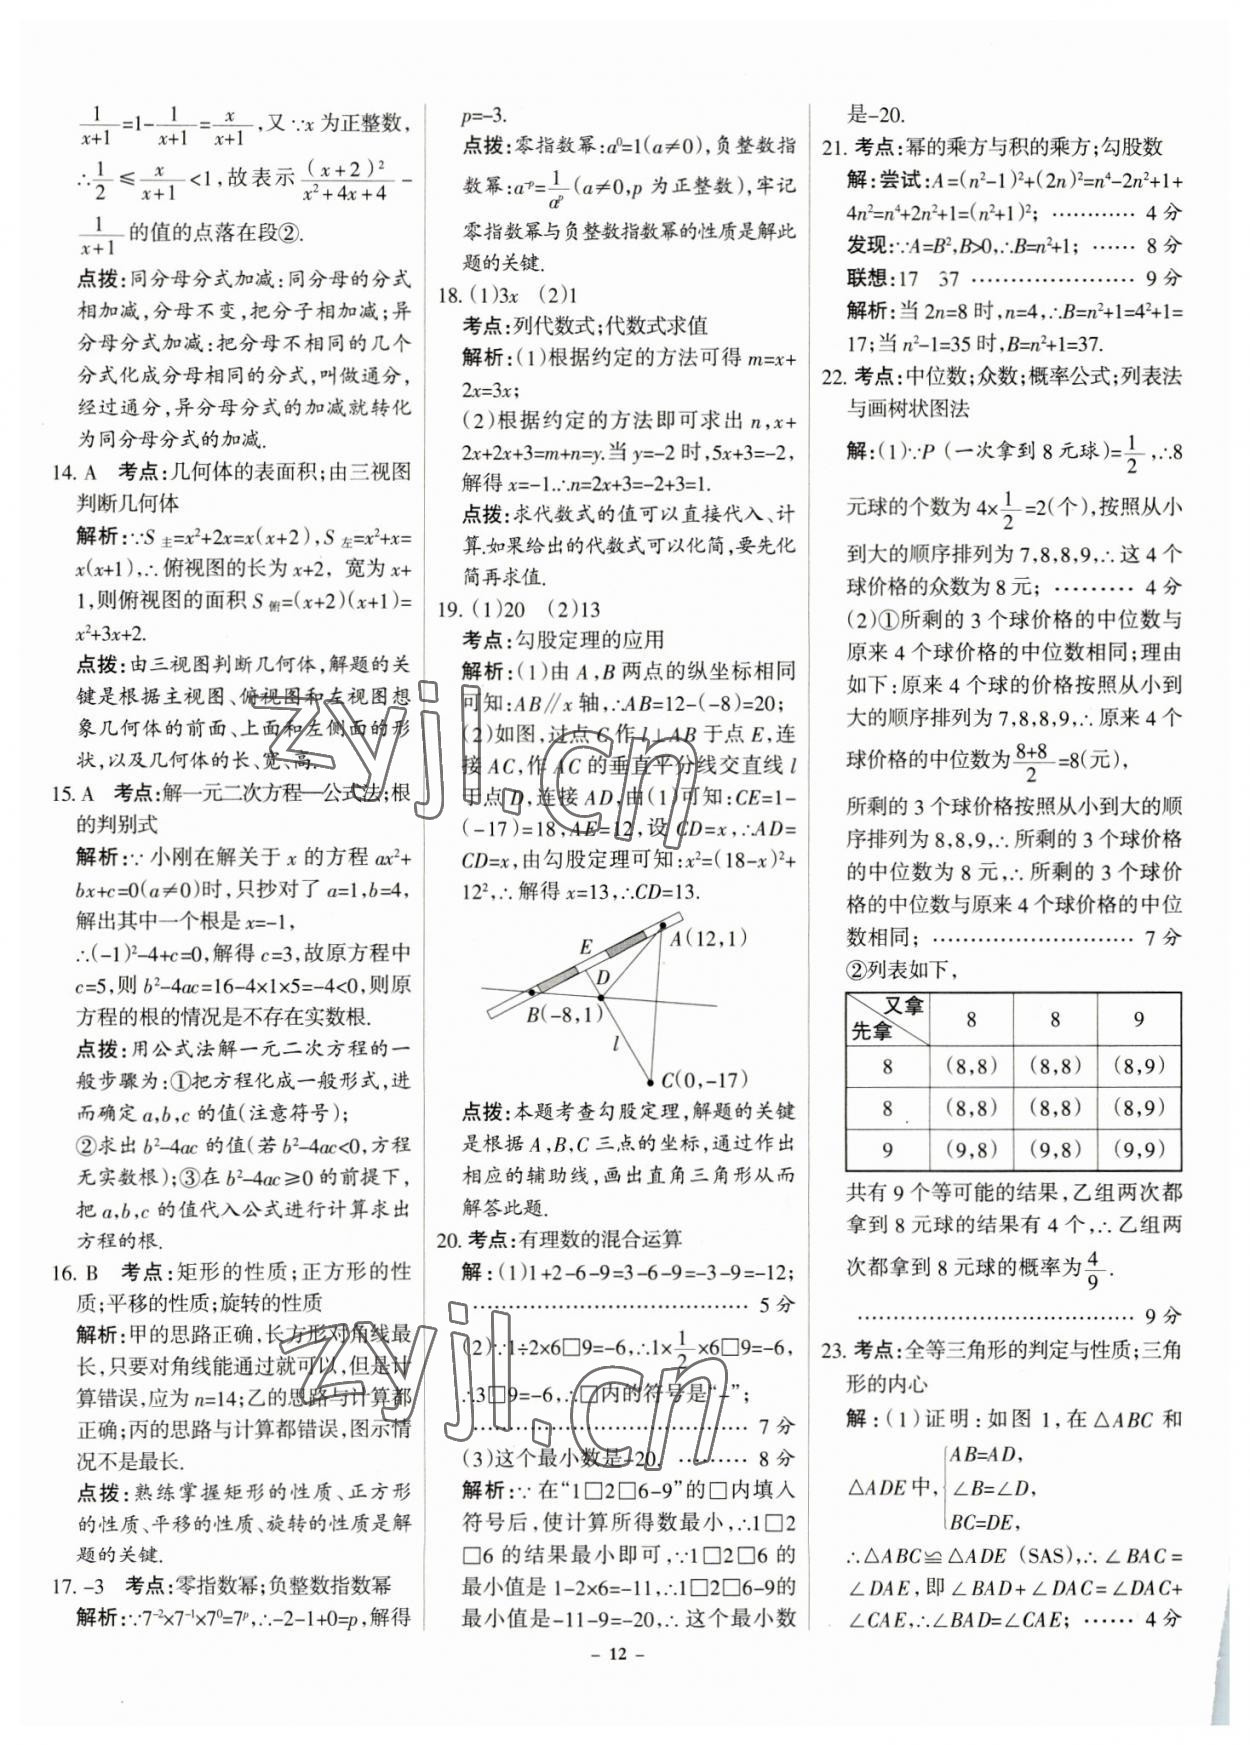 1/(x+1)=1-1/(x+1)=x/(x+1),又∵x为正整数,
∴1/2≤x/(x+1)<1,故表示(x+2)²/(x²+4x+4)-
1/(x+1)的值的点落在段②.
点拨:同分母分式加减:同分母的分式
相加减,分母不变,把分子相加减;异
分母分式加减:把分母不相同的几个
分式化成分母相同的分式,叫做通分,
经过通分,异分母分式的加减就转化
为同分母分式的加减.
14. A 考点:几何体的表面积;由三视图
判断几何体
解析:∵S主=x²+2x=x(x+2),S左=x²+x=
x(x+1),∴俯视图的长为x+2, 宽为x+
1,则俯视图的面积S俯=(x+2)(x+1)=
x²+3x+2.
点拨:由三视图判断几何体,解题的关
键是根据主视图、俯视图和左视图想
象几何体的前面、上面和左侧面的形
状,以及几何体的长、宽、高.
15. A 考点:解一元二次方程—公式法;根
的判别式
解析:∵小刚在解关于x的方程ax²+
bx+c=0(a≠0)时,只抄对了a=1,b=4,
解出其中一个根是x=-1,
∴(-1)²-4+c=0,解得c=3,故原方程中
c=5,则b²-4ac=16-4×1×5=-4<0,则原
方程的根的情况是不存在实数根.
点拨:用公式法解一元二次方程的一
般步骤为:①把方程化成一般形式,进
而确定a,b,c的值(注意符号);
②求出b²-4ac的值(若b²-4ac<0,方程
无实数根);③在b²-4ac≥0的前提下,
把a,b,c的值代入公式进行计算求出
方程的根.
16. B 考点:矩形的性质;正方形的性
质;平移的性质;旋转的性质
解析:甲的思路正确,长方形对角线最
长,只要对角线能通过就可以,但是计
算错误,应为n=14;乙的思路与计算都
正确;丙的思路与计算都错误,图示情
况不是最长.
点拨:熟练掌握矩形的性质、正方形
的性质、平移的性质、旋转的性质是解
题的关键.
17. -3 考点:零指数幂;负整数指数幂
解析:∵7⁻²×7⁻¹×7⁰=7ᵖ,∴-2-1+0=p,解得
p=-3.
点拨:零指数幂:a⁰=1(a≠0),负整数指
数幂:a⁻ᵖ=1/aᵖ(a≠0,p为正整数),牢记
零指数幂与负整数指数幂的性质是解此
题的关键.
18. (1)3x (2)1
考点:列代数式;代数式求值
解析:(1)根据约定的方法可得m=x+
2x=3x;
(2)根据约定的方法即可求出n,x+
2x+2x+3=m+n=y.当y=-2时,5x+3=-2,
解得x=-1.∴n=2x+3=-2+3=1.
点拨:求代数式的值可以直接代入、计
算.如果给出的代数式可以化简,要先化
简再求值.
19. (1)20 (2)13
考点:勾股定理的应用
解析:(1)由A,B两点的纵坐标相同
可知:AB∥x轴,∴AB=12-(-8)=20;
(2)如图,过点C作l⊥AB于点E,连
接AC,作AC的垂直平分线交直线l
于点D,连接AD,由(1)可知:CE=1-
(-17)=18,AE=12,设CD=x,∴AD=
CD=x,由勾股定理可知:x²=(18-x)²+
12²,∴解得x=13,∴CD=13.
E
A(12,1)
D
B(-8,1)
l
C(0,-17)
点拨:本题考查勾股定理,解题的关键
是根据A,B,C三点的坐标,通过作出
相应的辅助线,画出直角三角形从而
解答此题.
20. 考点:有理数的混合运算
解:(1)1+2-6-9=3-6-9=-3-9=-12;
…………………………………… 5分
(2)∵1÷2×6□9=-6,∴1×1/2×6□9=-6,
∴3□9=-6,∴□内的符号是“-”;
…………………………………… 7分
(3)这个最小数是-20. ……… 8分
解析:∵在“1□2□6-9”的□内填入
符号后,使计算所得数最小,∴1□2
□6的结果最小即可,∵1□2□6的
最小值是1-2×6=-11,∴1□2□6-9的
最小值是-11-9=-20,∴这个最小数
是-20.
21. 考点:幂的乘方与积的乘方;勾股数
解:尝试:A=(n²-1)²+(2n)²=n⁴-2n²+1+
4n²=n⁴+2n²+1=(n²+1)²; ………… 4分
发现:∵A=B²,B>0,∴B=n²+1; …… 8分
联想:17 37 …………………… 9分
解析:当2n=8时,n=4,∴B=n²+1=4²+1=
17;当n²-1=35时,B=n²+1=37.
22. 考点:中位数;众数;概率公式;列表法
与画树状图法
解:(1)∵P(一次拿到8元球)=1/2,∴8
元球的个数为4×1/2=2(个),按照从小
到大的顺序排列为7,8,8,9,∴这4个
球价格的众数为8元; ……… 4分
(2)①所剩的3个球价格的中位数与
原来4个球价格的中位数相同;理由
如下:原来4个球的价格按照从小到
大的顺序排列为7,8,8,9,∴原来4个
球价格的中位数为(8+8)/2=8(元),
所剩的3个球价格按照从小到大的顺
序排列为8,8,9,∴所剩的3个球价格
的中位数为8元,∴所剩的3个球价
格的中位数与原来4个球价格的中位
数相同; ……………………… 7分
②列表如下,
又拿 先拿 8 8 9
8 (8,8) (8,8) (8,9)
8 (8,8) (8,8) (8,9)
9 (9,8) (9,8) (9,9)
共有9个等可能的结果,乙组两次都
拿到8元球的结果有4个,∴乙组两
次都拿到8元球的概率为4/9.
…………………………………… 9分
23. 考点:全等三角形的判定与性质;三角
形的内心
解:(1)证明:如图1,在△ABC和
△ADE中,{AB=AD,
∠B=∠D,
BC=DE,
∴△ABC≌△ADE(SAS),∴∠BAC=
∠DAE,即∠BAD+∠DAC=∠DAC+
∠CAE,∴∠BAD=∠CAE; …… 4分
- 12 -
zyjl.cn
zyjl.cn